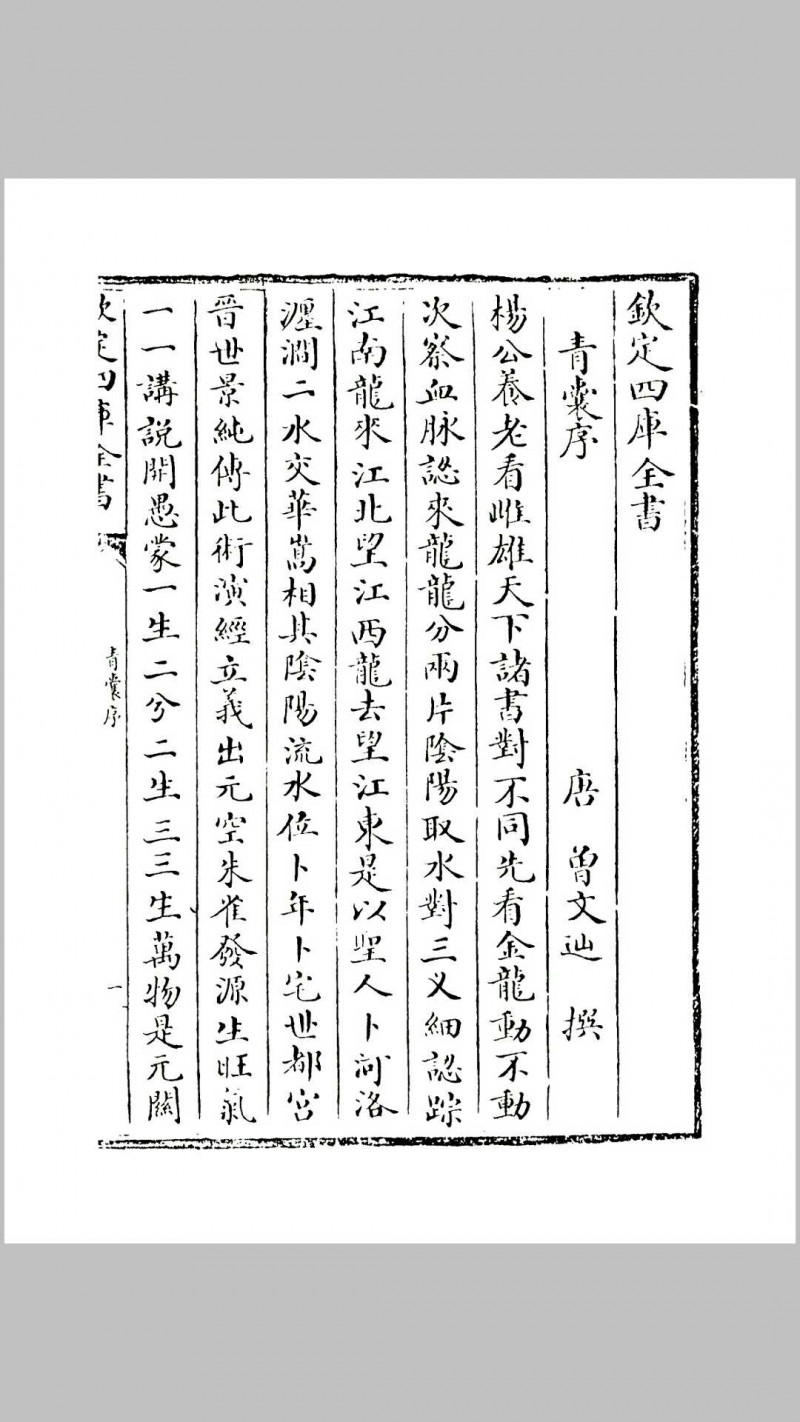 欽定四庫全書
青囊序
唐 曾文辿 撰
楊公養老看雌雄天下諸書對不同先看金龍動不動
次察血脉認來龍龍分兩片陰陽取水對三义細認踪
江南龍來江北望江西龍去望江東是以聖人卜河洛
瀍澗二水交華嵩相其陰陽流水位卜年卜宅世都宮
晉世景純傳此術演經立義出元空朱雀發源生旺氣
一一講說開愚蒙一生二兮二生三三生萬物是元關
欽定四庫全書
青囊序
一